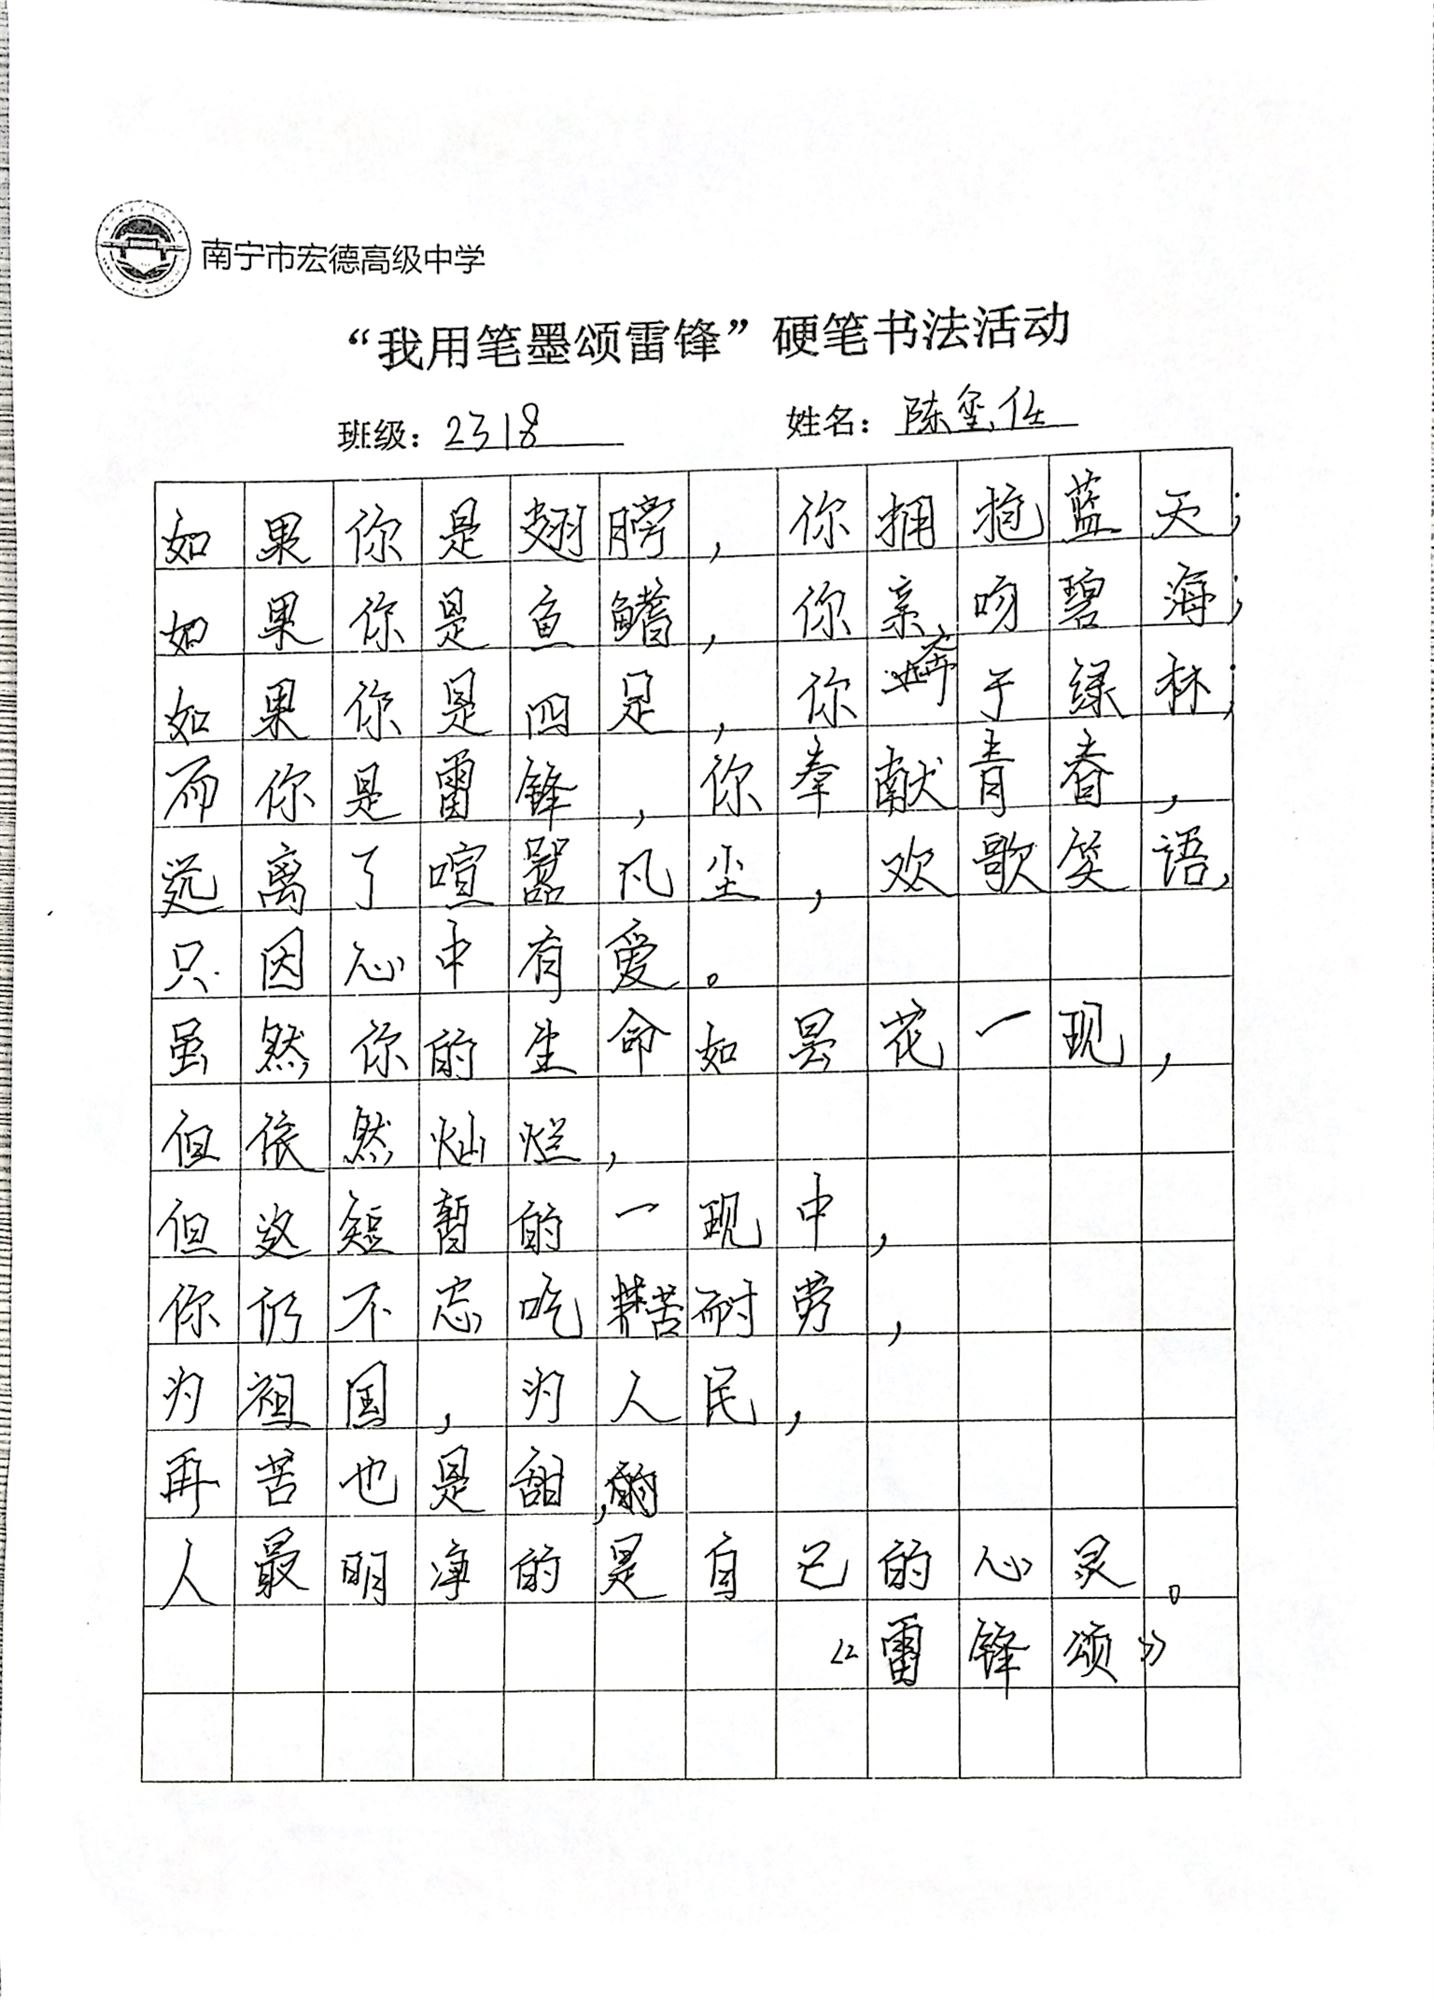 南宁市宏德高级中学
“我用笔墨颂雷锋”硬笔书法活动
班级：2318 姓名：陈玺任
如果你是翅膀，你拥抱蓝天；
如果你是鱼鳍，你亲吻碧海；
如果你是四足，你奔于绿林；
而你是雷锋，你奉献青春，
远离了喧嚣凡尘，欢歌笑语，
只因心中有爱。
虽然你的生命如昙花一现，
但依然灿烂，
但这短暂的一现中，
你仍不忘吃苦耐劳，
为祖国，为人民，
再苦也是甜，
人最明净的是自己的心灵。
《雷锋颂》